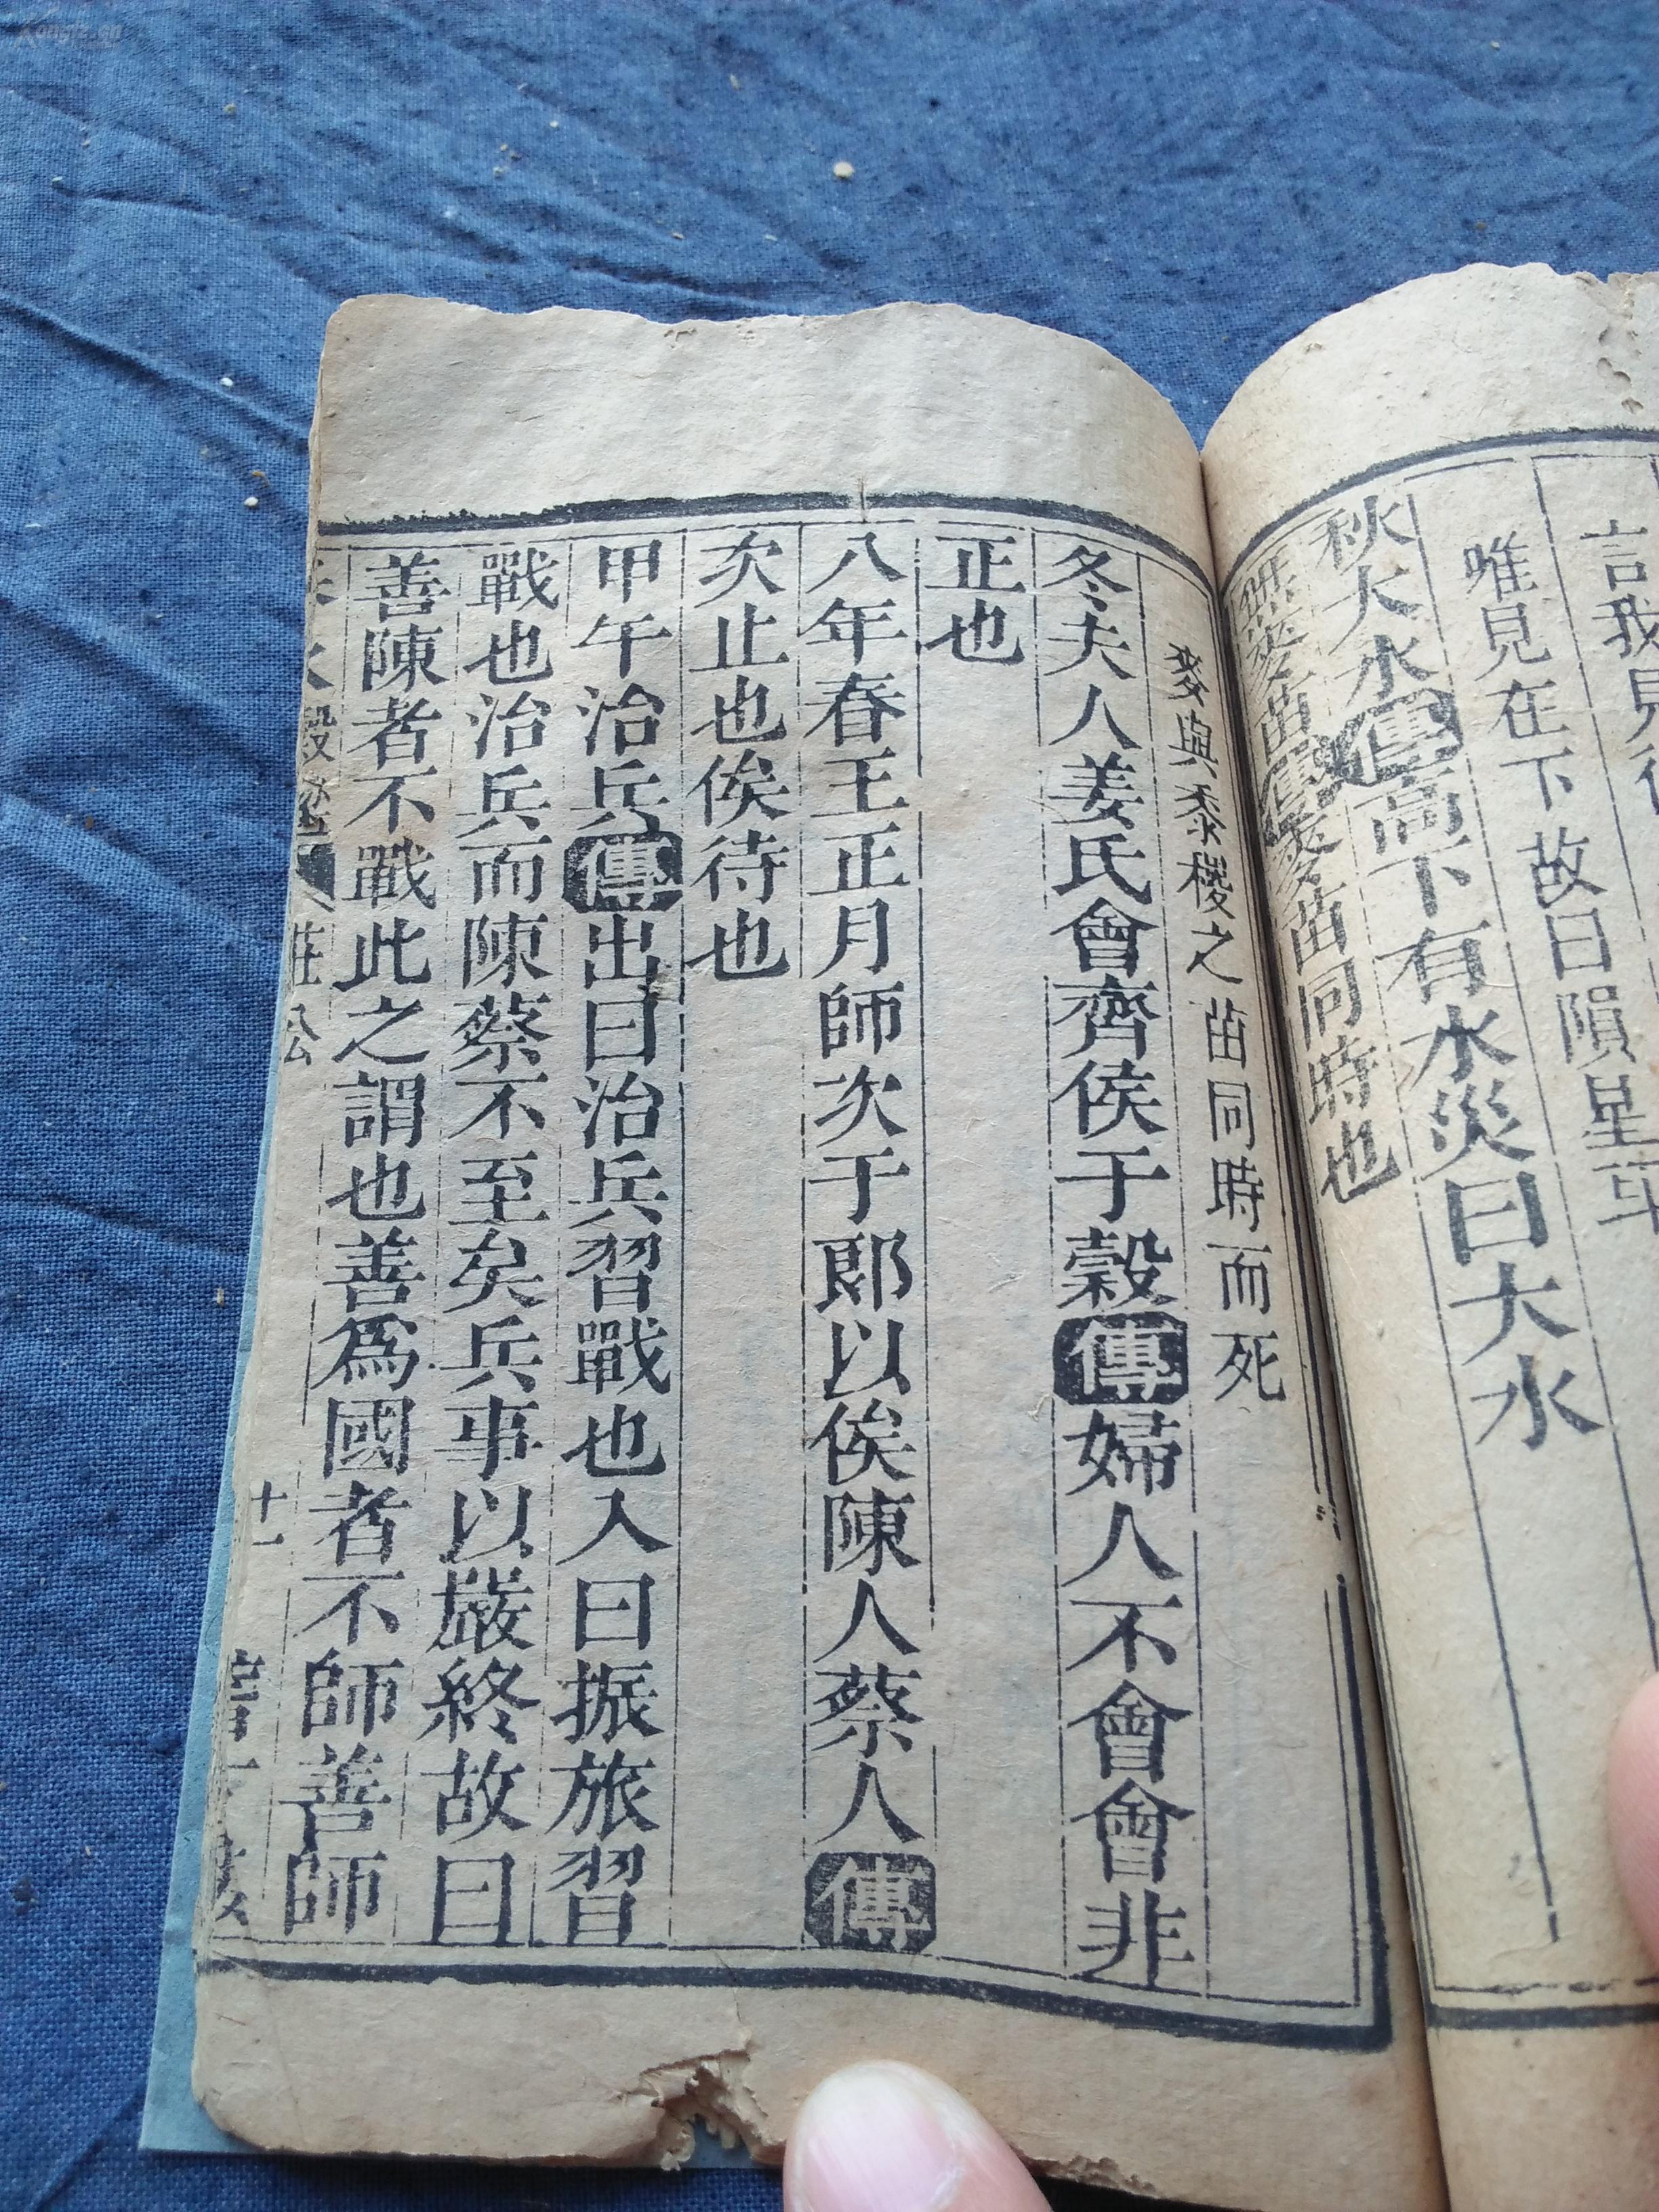 言我見
唯見在下故曰隕星
秋大水傳高下有水災曰大水
無麥苗傳麥苗同時也
麥與黍稷之苗同時而死
冬夫人姜氏會齊侯于穀傳婦人不會會非
正也
八年春王正月師次于郎以俟陳人蔡人傳
次止也俟待也
甲午治兵傳出曰治兵習戰也入曰振旅習
戰也治兵而陳蔡不至矣兵事以嚴終故曰
善陳者不戰此之謂也善爲國者不師善師
莊公
十一